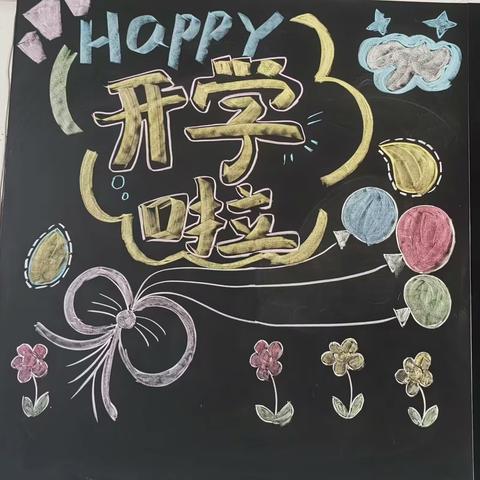 HAPPY
开学
啦